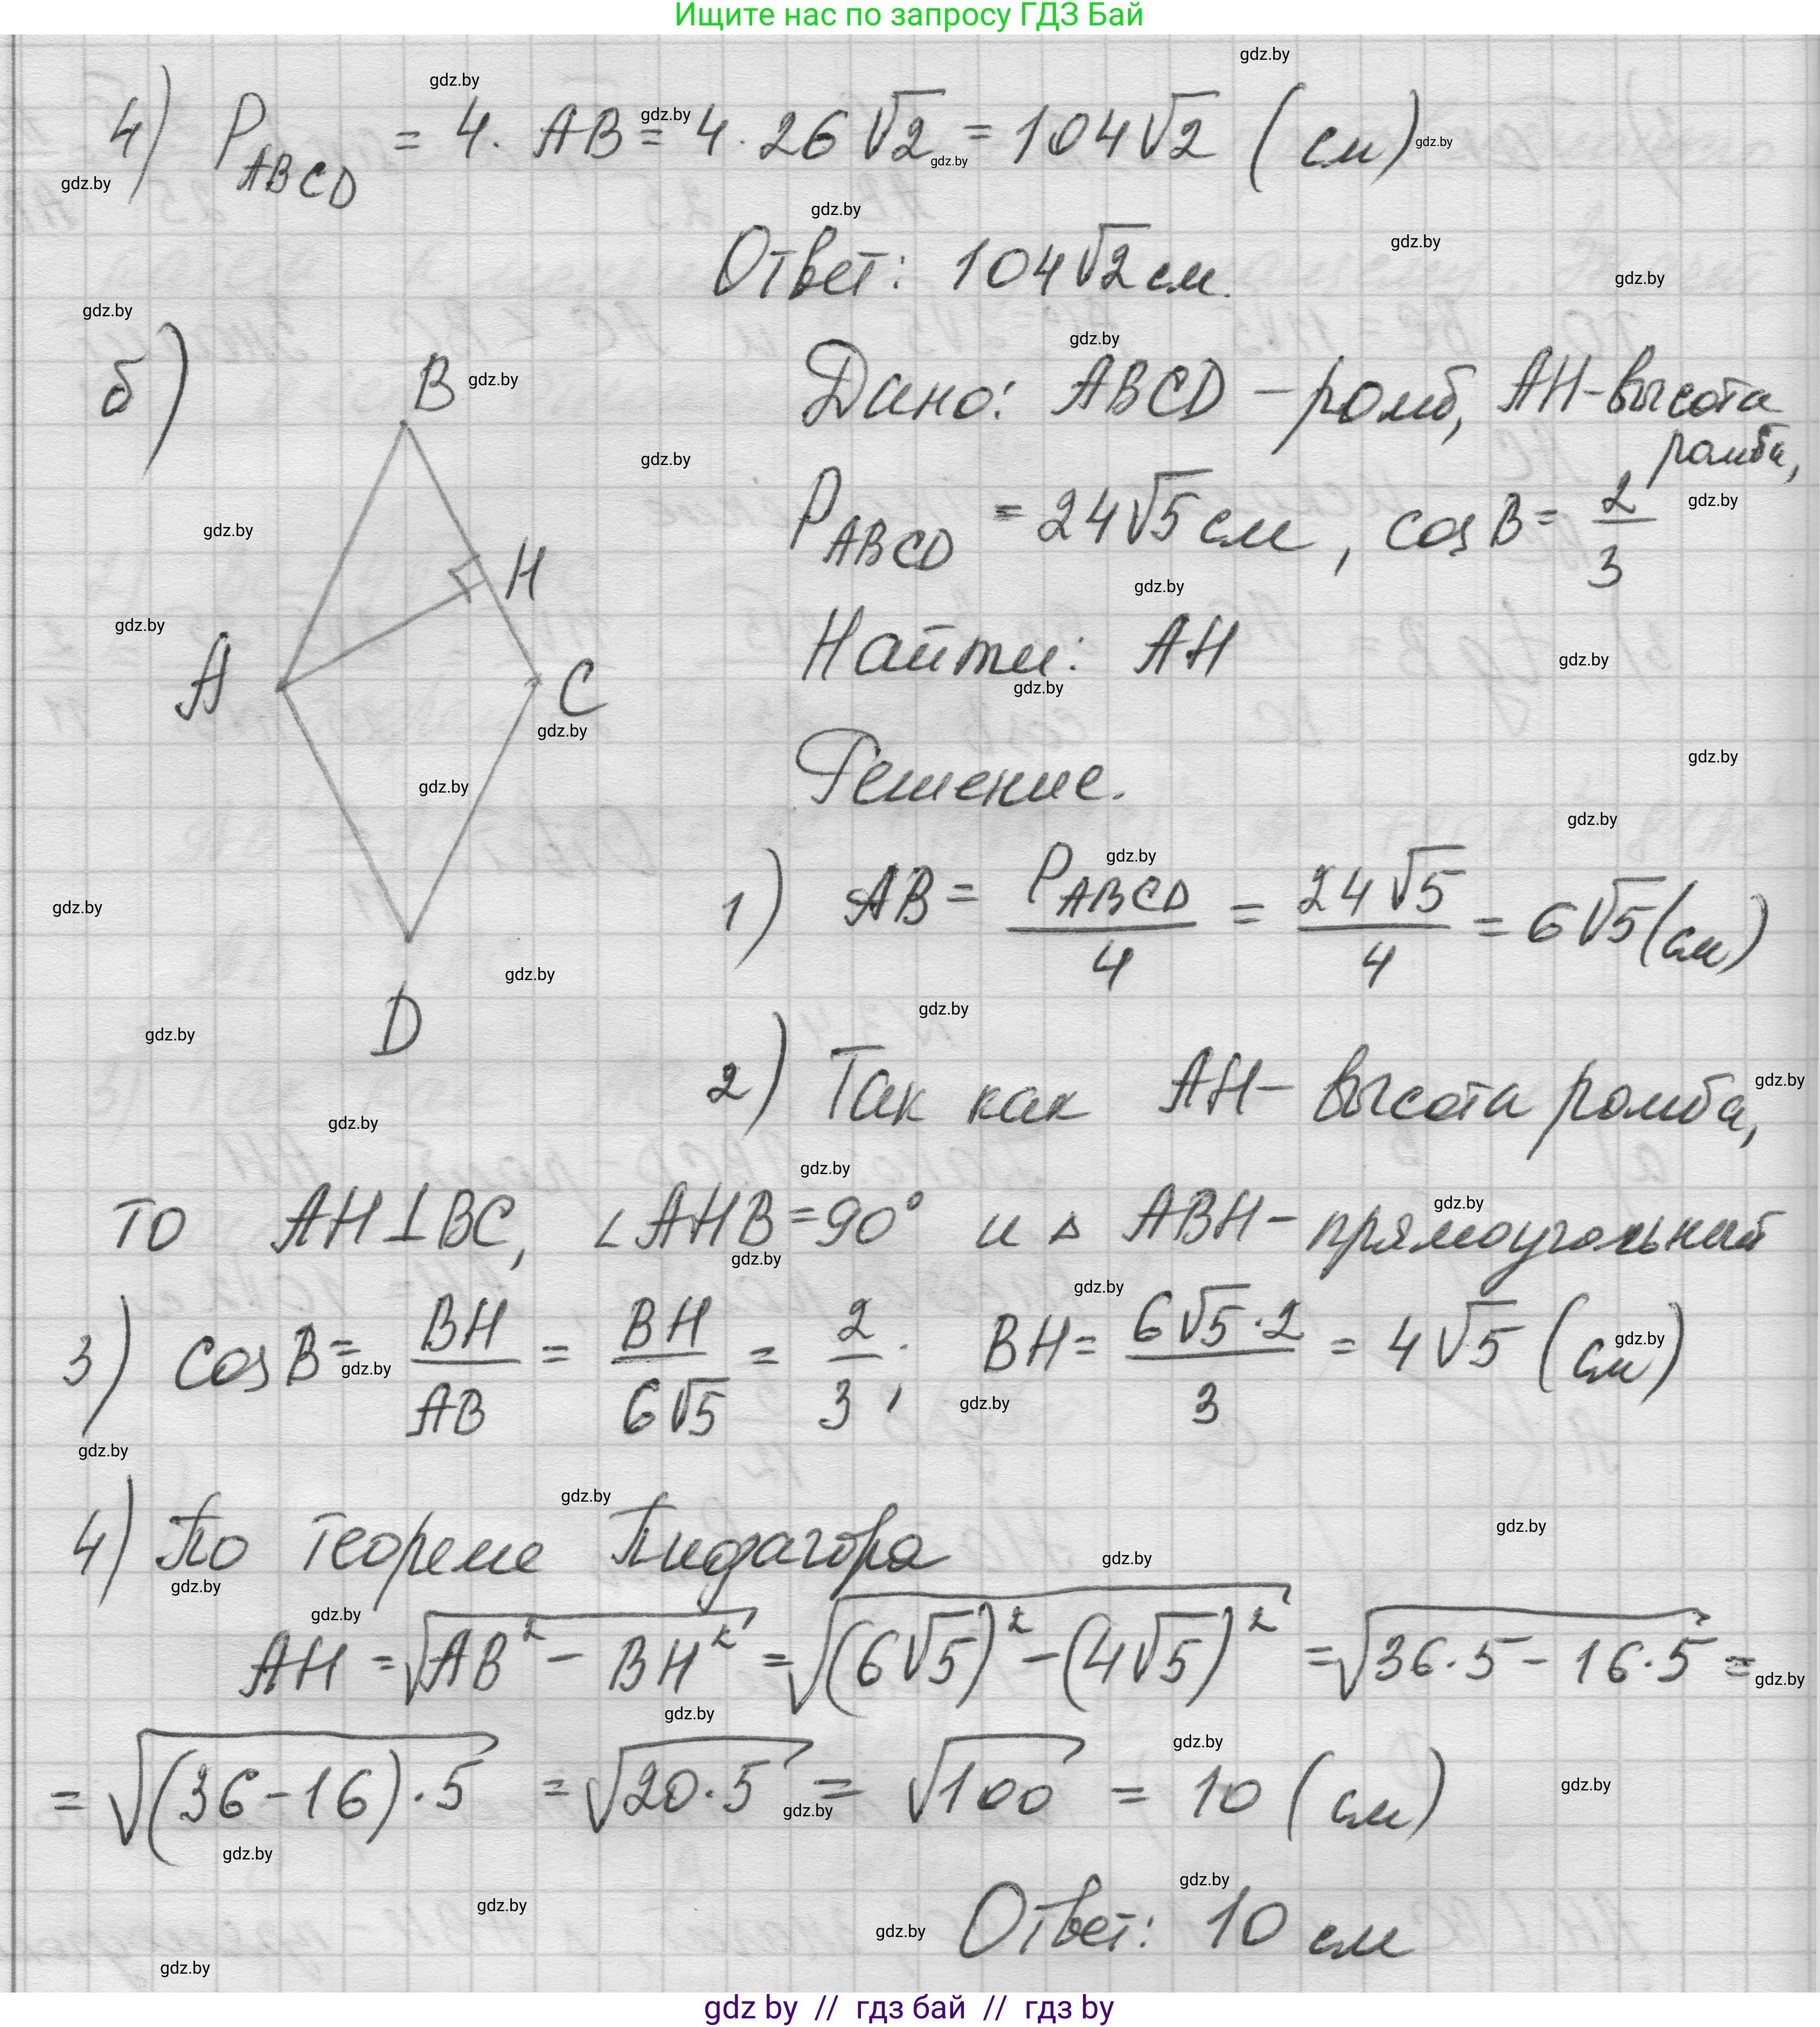 Ищите нас по запросу ГДЗ Бай
4) P_ABCD = 4 · AB = 4 · 26√2 = 104√2 (см)
Ответ: 104√2 см.
б)
Дано: ABCD – ромб, AH – высота ромба,
P_ABCD = 24√5 см, cos B = 2/3
Найти: AH
Решение.
1) AB = P_ABCD/4 = 24√5/4 = 6√5 (см)
2) Так как AH – высота ромба,
то AH⊥BC, ∠AHB = 90° и △ ABH – прямоугольный
3) cos B = BH/AB = BH/6√5 = 2/3; BH = 6√5·2/3 = 4√5 (см)
4) По теореме Пифагора
AH = √(AB² – BH²) = √((6√5)² – (4√5)²) = √(36·5 – 16·5) =
= √((36–16)·5) = √(20·5) = √100 = 10 (см)
Ответ: 10 см
B
H
A
C
D
gdz.by
gdz by // гдз бай // гдз by